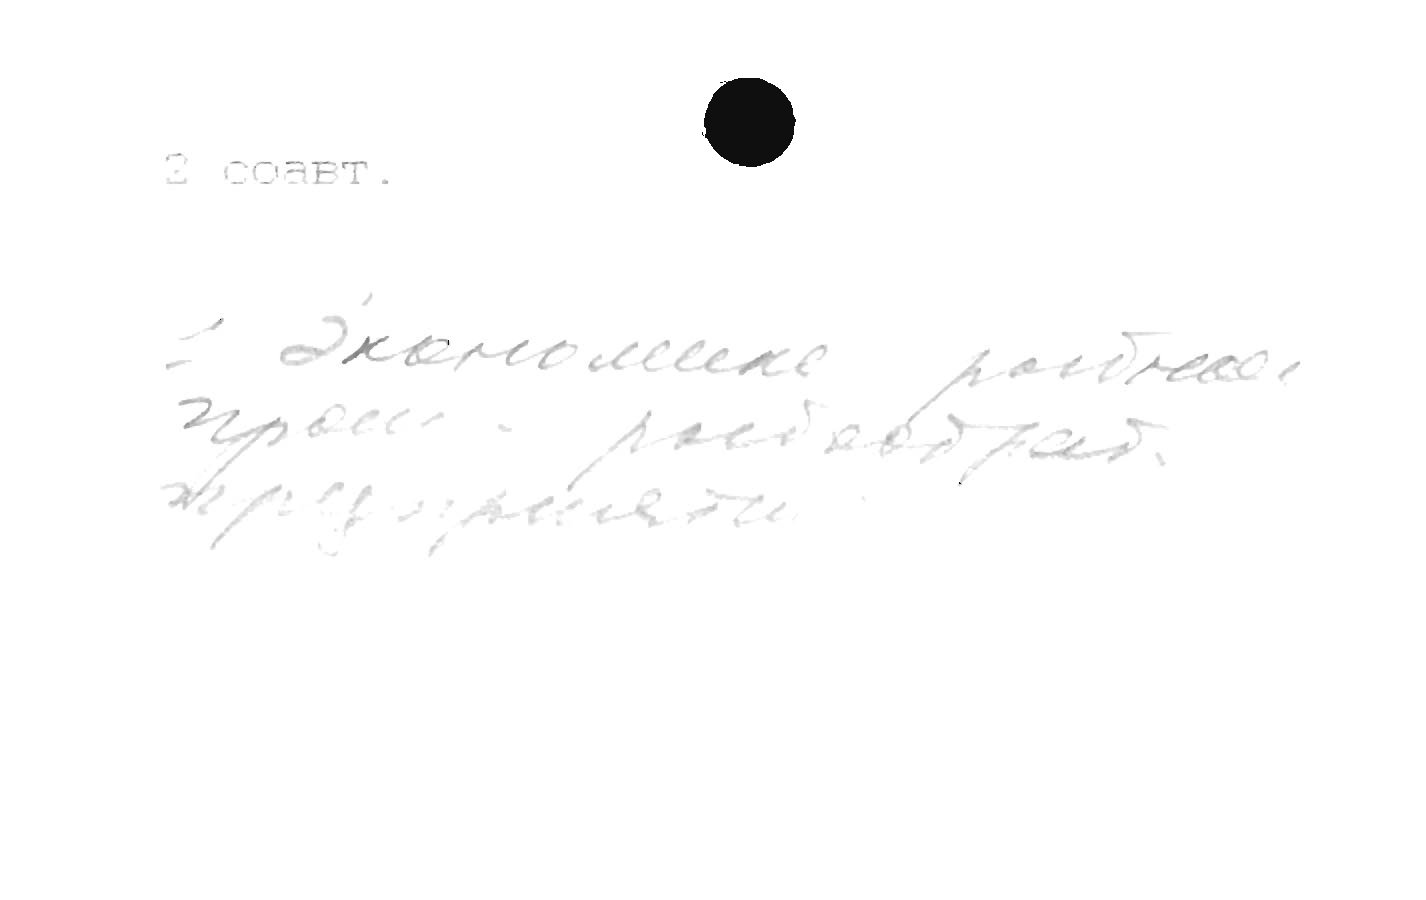 2 соавт.
: Экономика рыбной
пром. - рыбообраб.
предприяти